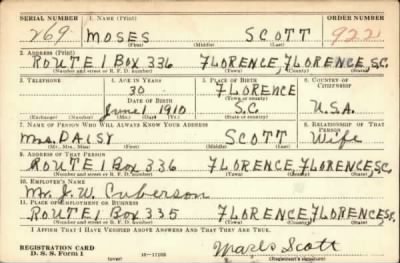 SERIAL NUMBER 1. NAME (Print) ORDER NUMBER
269 MOSES SCOTT 922
(First) (Middle) (Last)
2. ADDRESS (Print)
ROUTE 1 BOX 336 FLORENCE, FLORENCE, S.C.
(Number and street or R. F. D. number) (Town) (County) (State)
3. TELEPHONE 4. AGE IN YEARS 5. PLACE OF BIRTH 6. COUNTRY OF CITIZENSHIP
30 FLORENCE
DATE OF BIRTH (Town or county)
June 1 1910 S.C. U.S.A.
(Exchange) (Number) (Mo.) (Day) (Yr.) (State or country)
7. NAME OF PERSON WHO WILL ALWAYS KNOW YOUR ADDRESS 8. RELATIONSHIP OF THAT PERSON
Mrs. DAISY SCOTT Wife
(Mr., Mrs., Miss) (First) (Middle) (Last)
9. ADDRESS OF THAT PERSON
ROUTE 1 BOX 336 FLORENCE, FLORENCE, S.C.
(Number and street or R. F. D. number) (Town) (County) (State)
10. EMPLOYER'S NAME
Mr. J. W. Cuberson
11. PLACE OF EMPLOYMENT OR BUSINESS
ROUTE 1 BOX 335 FLORENCE, FLORENCE, S.C.
(Number and street or R. F. D. number) (Town) (County) (State)
I AFFIRM THAT I HAVE VERIFIED ABOVE ANSWERS AND THAT THEY ARE TRUE.
REGISTRATION CARD
D. S. S. Form 1 (over) Moses Scott
(Registrant's signature)